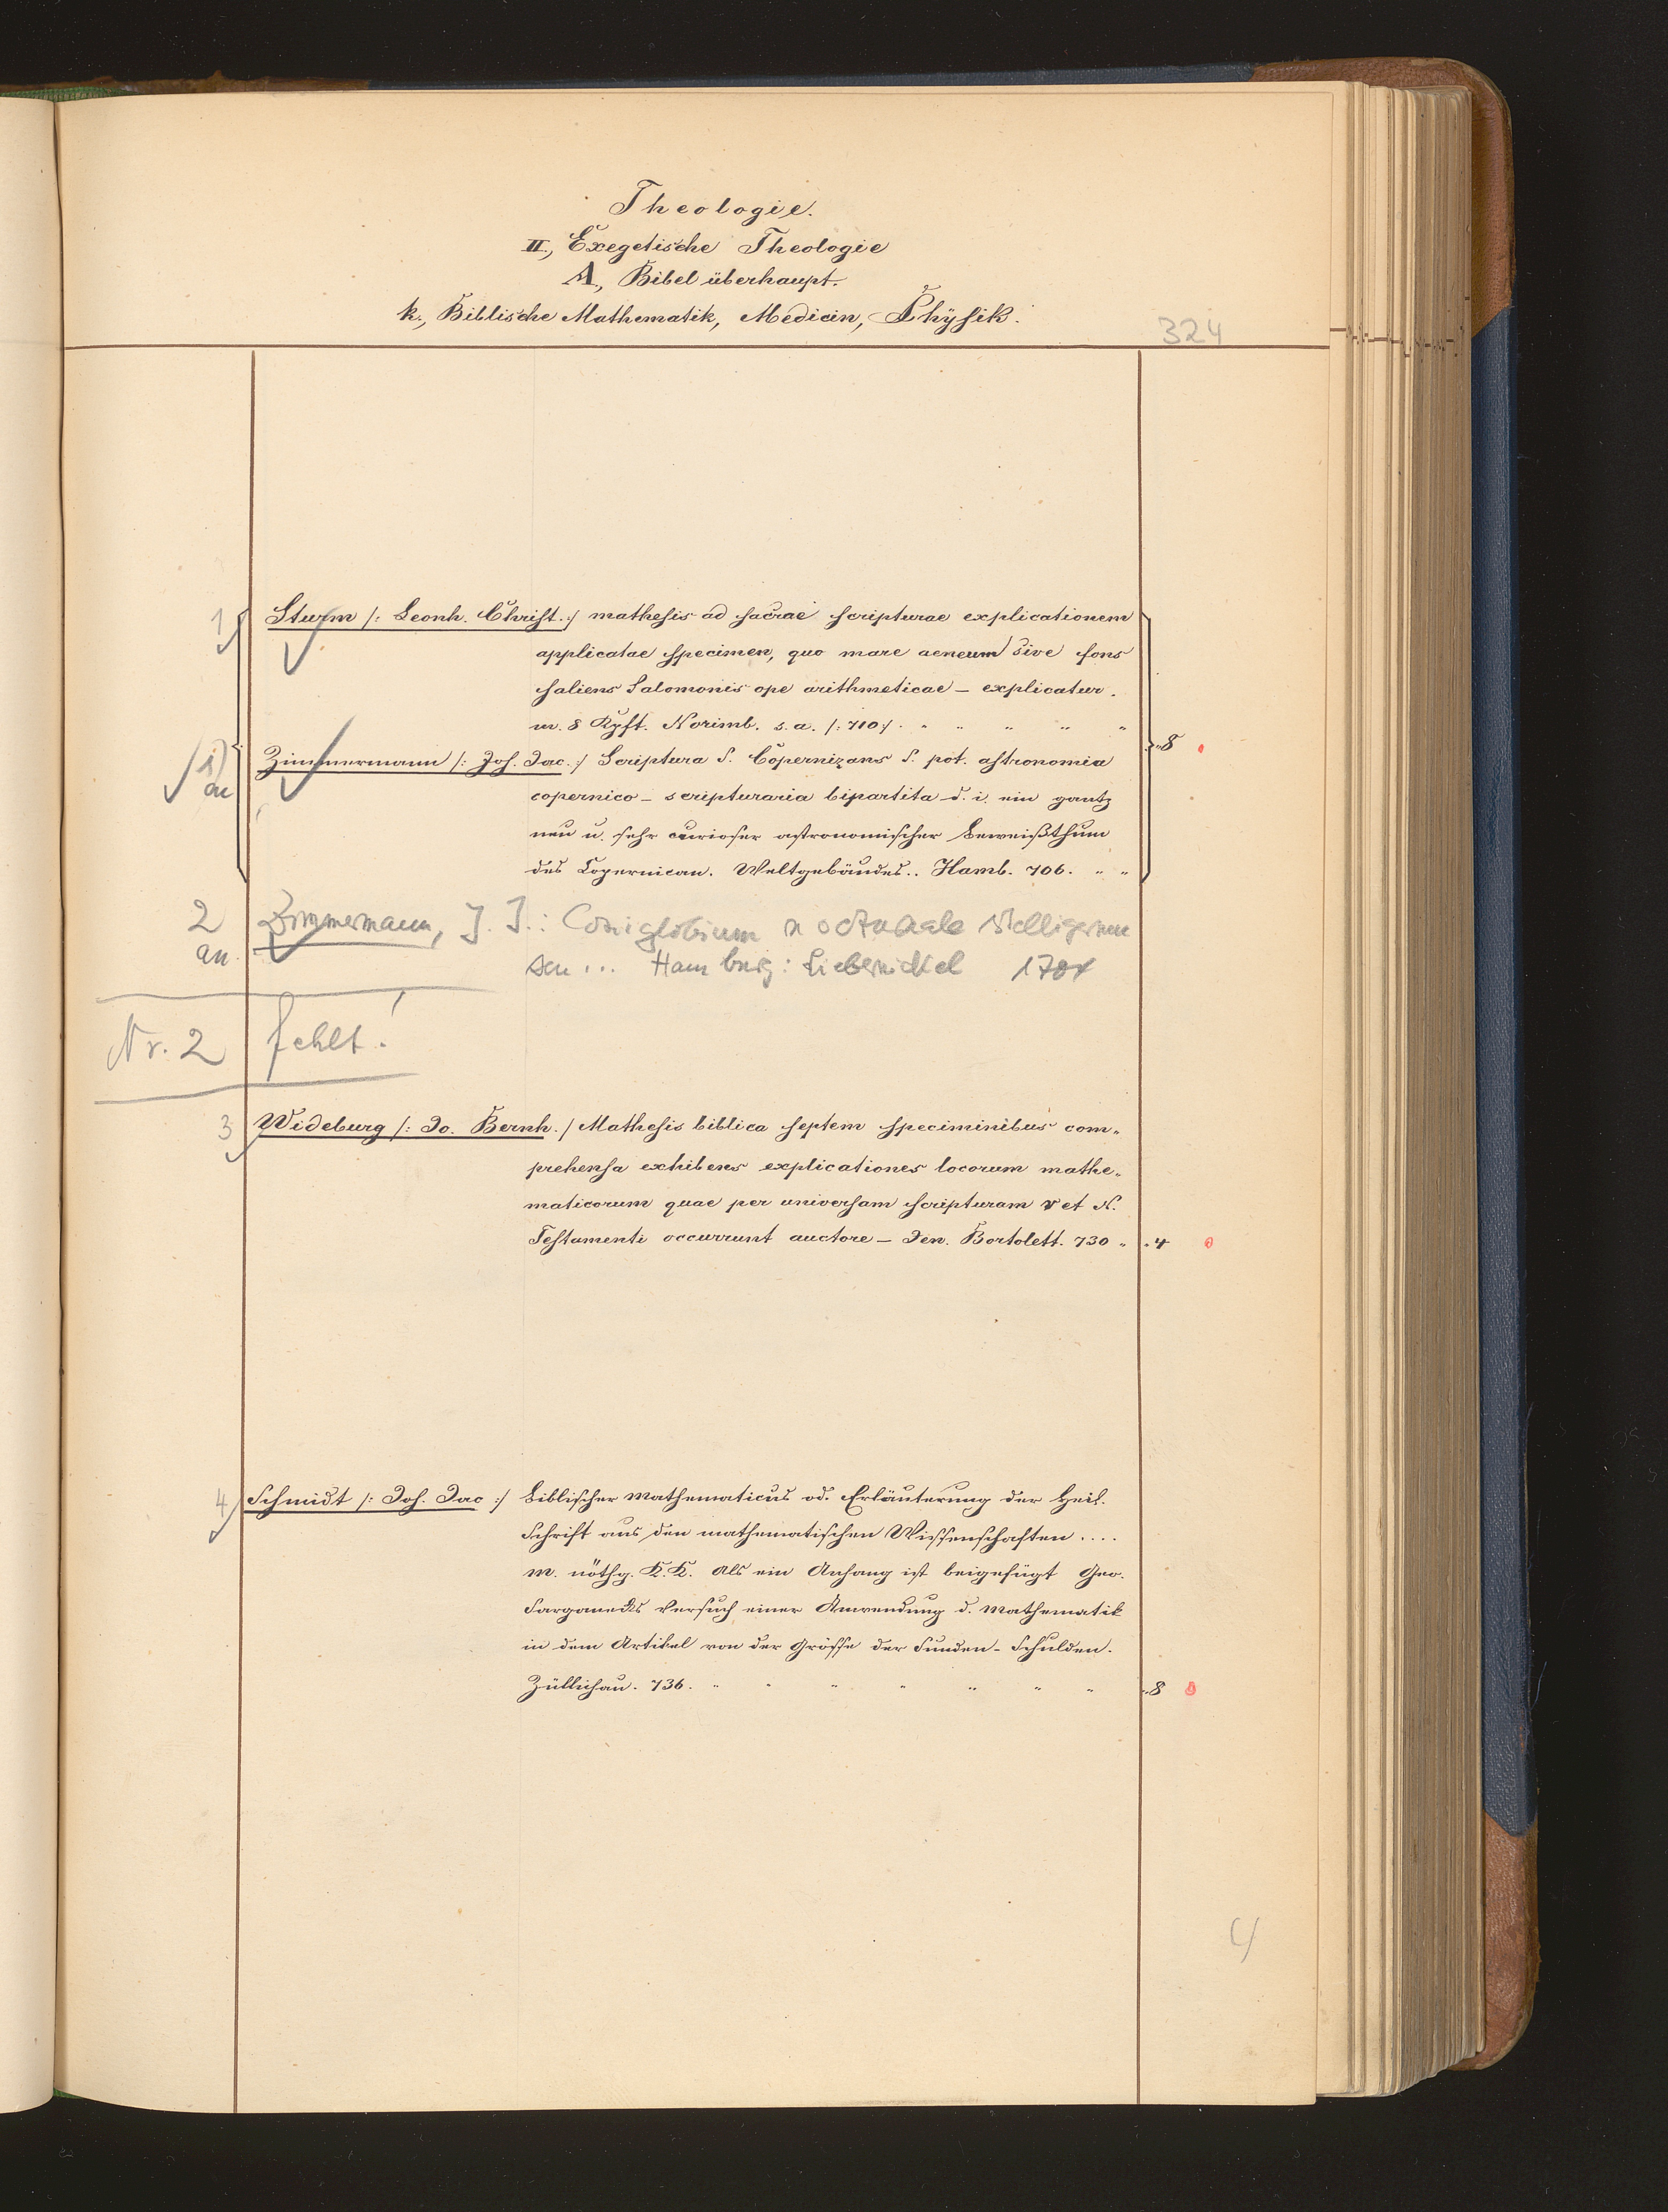 Theologie.
II., Exegetische Theologie
A., Bibel überhaupt.
k., Biblische Mathematik, Medicin, Physik.
324
1 Sturm /: Leonh. Christ. :/ mathesis ad sacrae scripturae explicationem
applicatae specimen, quo mare aeneum sive fons
saliens Salomonis ope arithmeticae – explicatur.
m. 8 Kpft. Norimb. s. a. /: 710 :/ . " " " " "
1) an Zimmermann /: Joh. Jac. :/ Scriptura S. Copernizans S. pot. astronomia "8
copernico – scripturaria bipartita d. i. ein gantz
neu u. sehr curioser astronomischer Beweißthum
des Copernican. Weltgebäudes.. Hamb. 706. " "
2 an. Zimmermann, J. J.: Coniglobium
seu ... Hamburg: Liebernickel
Nr. 2 fehlt!
3 Wideburg /: Jo. Bernh. / Mathesis biblica septem speciminibus com„
prehensa exhibens explicationes locorum mathe„
maticorum quae per universam scripturam V et N.
Testamenti occurrunt auctore – Jen. Bortolett. 730 " "4
4 Schmidt /: Joh. Jac :/ Biblischer Mathematicus od. Erläuterung der Heil.
Schrift aus den mathematischen Wissenschaften ....
m. nöthg. K.K. Als ein Anhang ist beigefügt Geo.
Sarganecks Versuch einer Anwendung d. Mathematik
in dem Artikel von der Grösse der Sunden-Schulden.
Züllichau. 736. " " " " " " " "8
4